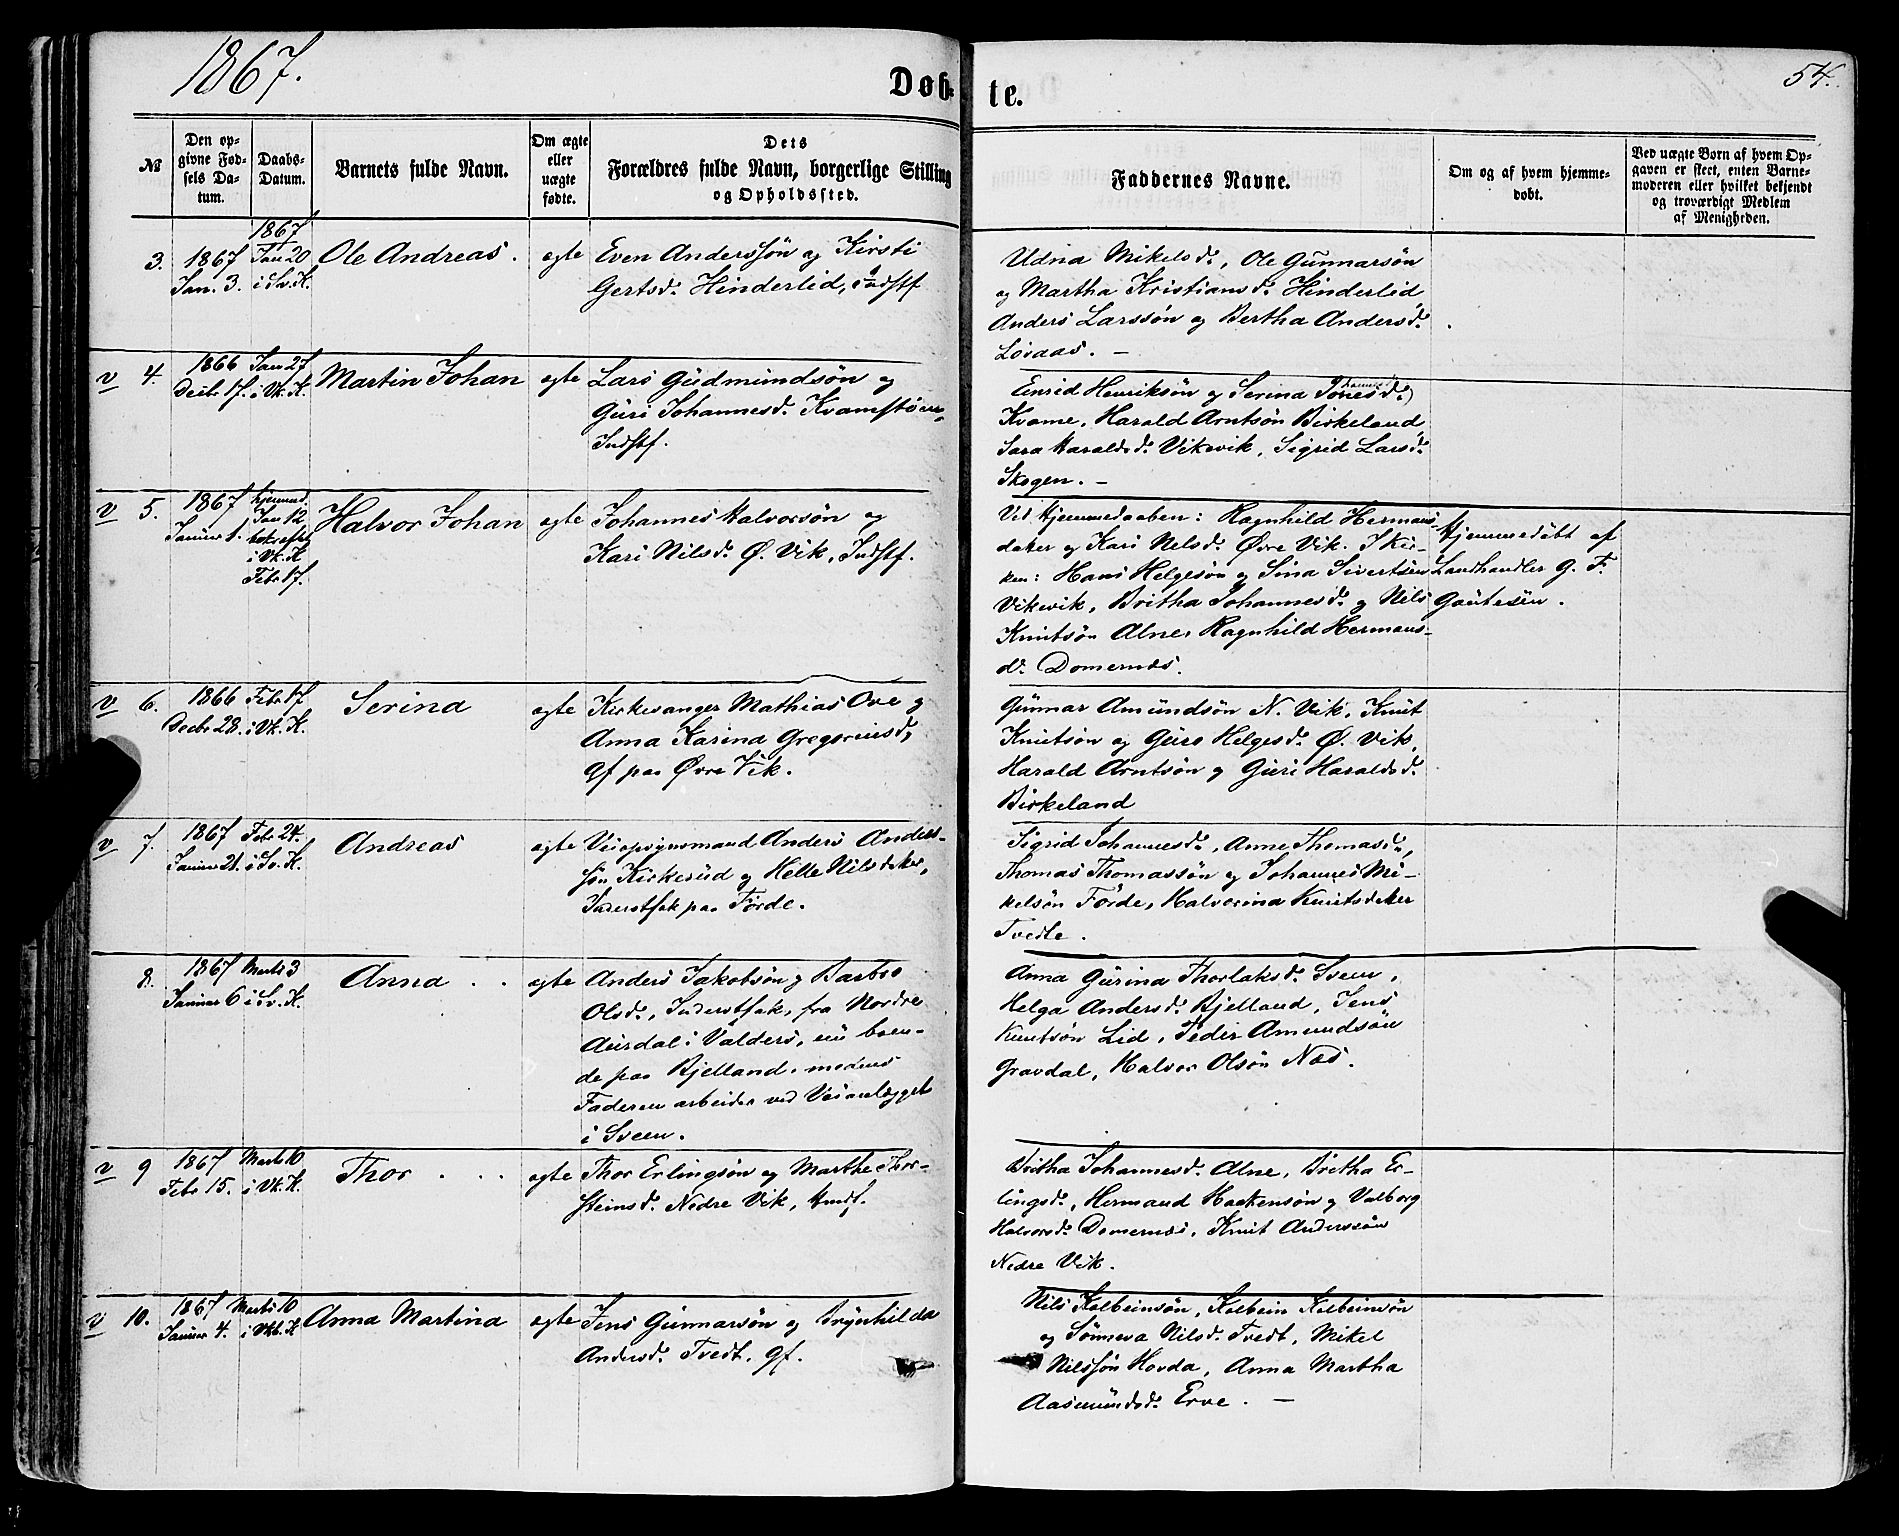 1867.
Døb-
te.
54.
№
Den op-
givne Fød-
sels Da-
tum.
Daabs-
Datum.
Barnets fulde Navn.
Om ægte
eller
uægte
fødte.
Dets
Forældres fulde Navn, borgerlige Stilling
og Opholdssted.
Faddernes Navne.
Om og af hvem hjemme-
døbt.
Ved uægte Børn af hvem Op-
gaven er skeet, enten Barne-
moderen eller hvilket bekjendt
og troværdigt Medlem
af Menigheden.
3.
1867
Jan. 3.
1867
Jan 20
i Sv. K.
Ole Andreas.
egte
Even Anderssøn og Kirsti
Gertsd. Hinderlid, indstf
Udna Mikelsd., Ole Gunnarsøn
og Martha Kristiansd. Hinderlid
Anders Larssøn og Bertha Andersd.
Løvaas. —
v 4.
1866
Decbr 17.
Jan 27
i Vk. K.
Martin Johan
egte
Lars Gudmundsøn og
Guri Johannesd. Kvamstøen,
Indstf.
Enrid Henriksøn og Serina Johannesd.
Kvame, Harald Arntsøn Birkeland
Sara Haraldsd. Vikevik, Sigrid Larsd.
Skogen. —
v 5.
1867
Januar 1.
hjemmed.
Jan 12
i Vk. K
Febr 17.
Halvor Johan
egte
Johannes Halvorsøn og
Kari Nilsd. Ø. Vik, Indstf.
Ved Hjemmedaaben: Ragnhild Hermans-
dater og Kari Nelsd. Øvre Vik. I Kir-
ken: Hans Helgesøn og Sina Sivertsen
Vikevik, Britha Johannesd. og Nils
Knutsøn Alner Ragnhild Hermans-
d. Domernæs.
Hjemmedøbt af
Landhandler G. F.
Gautesen.
v 6.
1866
Decbr 28.
Febr 17
i Vk. K.
Serina
egte
Kirkesanger Mathias Ove og
Anna Karina Gregoriusd.
gf paa Øvre Vik.
Gunnar Amundsøn N. Vik, Knut
Knutsøn og Guro Helgesd. Ø. Vik,
Harald Arntsøn og Guri Haraldsd.
Birkeland
v 7.
1867
Januar 21.
Febr 24.
i Sv. K.
Andreas
egte
Veiopsynsmand Anders Anders-
søn Kirkerud og Helle Nilsdater,
Inderstfolk paa Førde.
Sigrid Johannesd., Anne Thomasd.,
Thomas Thomassøn og Johannes Mi-
kelsøn Førde, Halvorina Knutsdater
Tvedte.
8.
1867
Januar 6
Marts 3
i Sv. K.
Anna . .
egte
Anders Jakobsøn og Barbro
Olsd., Inderstfolk, fra Nordre
Aurdal i Valders, nu boen-
de paa Bjelland, medens
Faderen arbeider ved Veianlægget
i Sveen.
Anna Gurina Thorlaksd. Sveen,
Helga Andersd. Bjelland, Jens
Knutsøn Lid, Peder Amundsøn
Gravdal, Halvor Olsøn Næs.
v 9
1867
Febr 15.
Marts 10
i Vk. K.
Thor . . .
egte
Thor Erlingsøn og Marthe Thor-
steinsd. Nedre Vik,
Britha Johannesd. Alne, Britha Er-
lingsd., Hermand Haakensøn og Valborg
Halvorsd. Domernæs, Knut Anderssøn
Nedre Vik.
v 10.
1867
Januar 4.
Marts 10
i Vk. K
Anna Martina
egte
Jens Gunnarsøn og Brynhilda
Andersd. Tvedt. gf.
Nils Kolbeinsøn, Kolbein Kolbeinsøn
og Sønneva Nilsd. Tvedt, Mikel
Nilssøn Hovda, Anna Martha
Aasmundsd. Erve. —